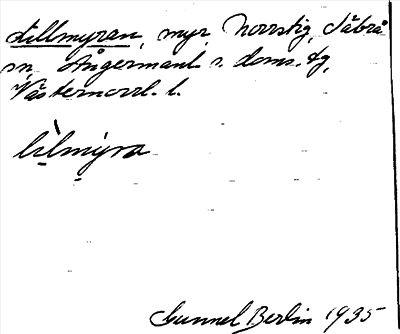 Lillmyran, myr, Norrstig, Säbrå
sn, Ångermanl. s. doms. tg,
Västernorrl. l.
Gunnel Berlin 1935